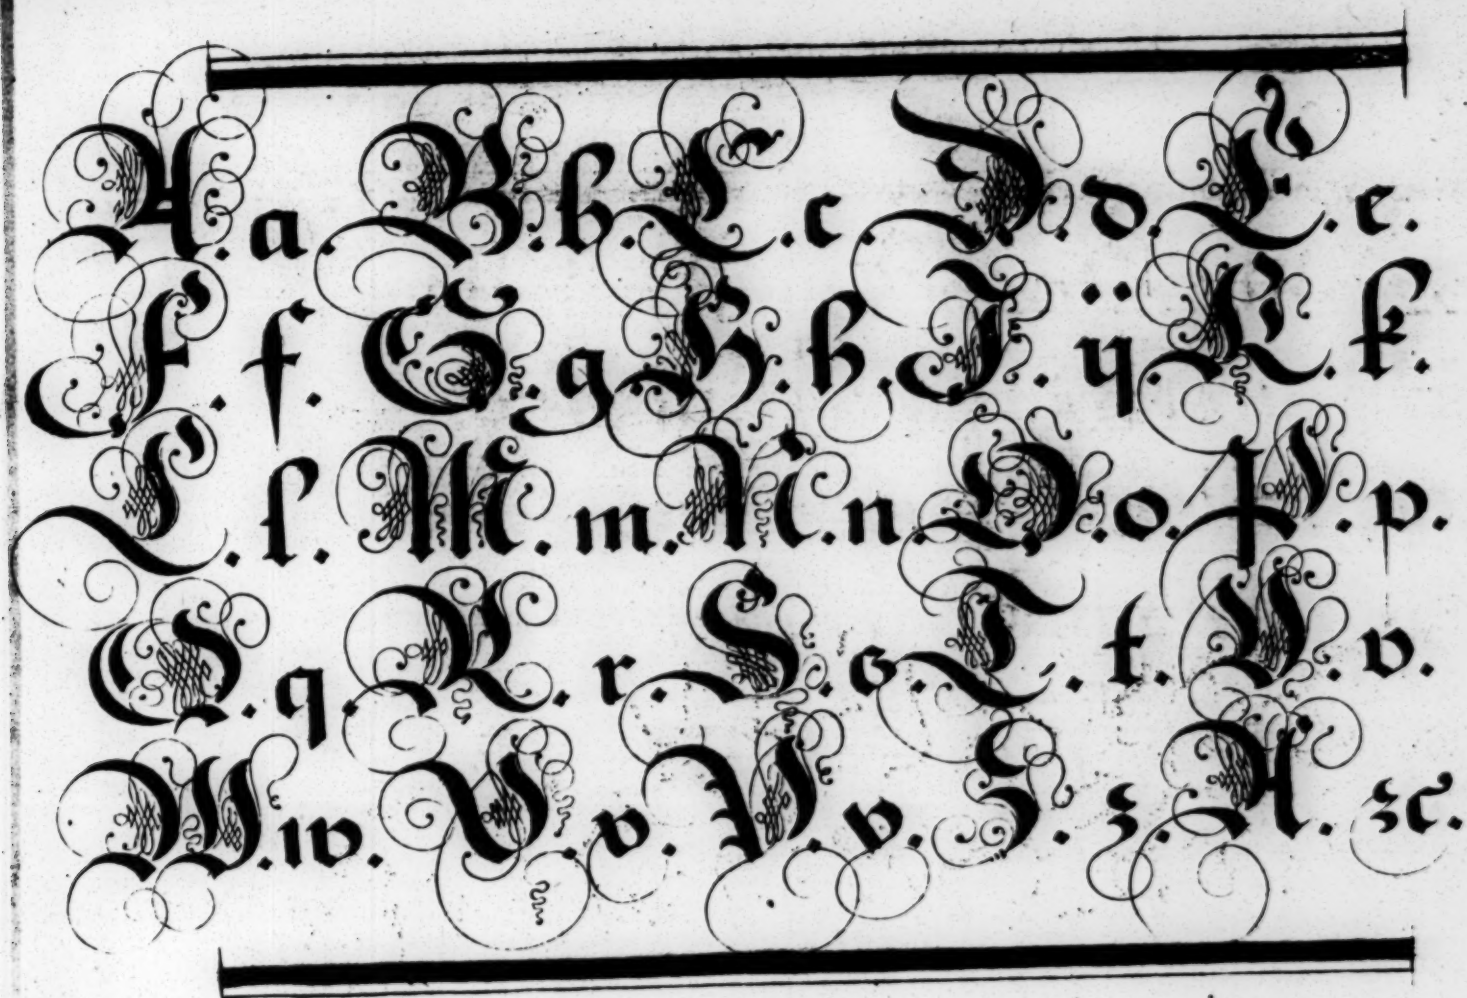 A. a. B. b. C. c. D. d. E. e.
F. f. G. g. H. h. I. ij. K. k.
L. l. M. m. N. n. O. o. P. p.
Q. q. R. r. S. s. T. t. V. v.
W. w. V. v. Z. z. A. ꝛc.